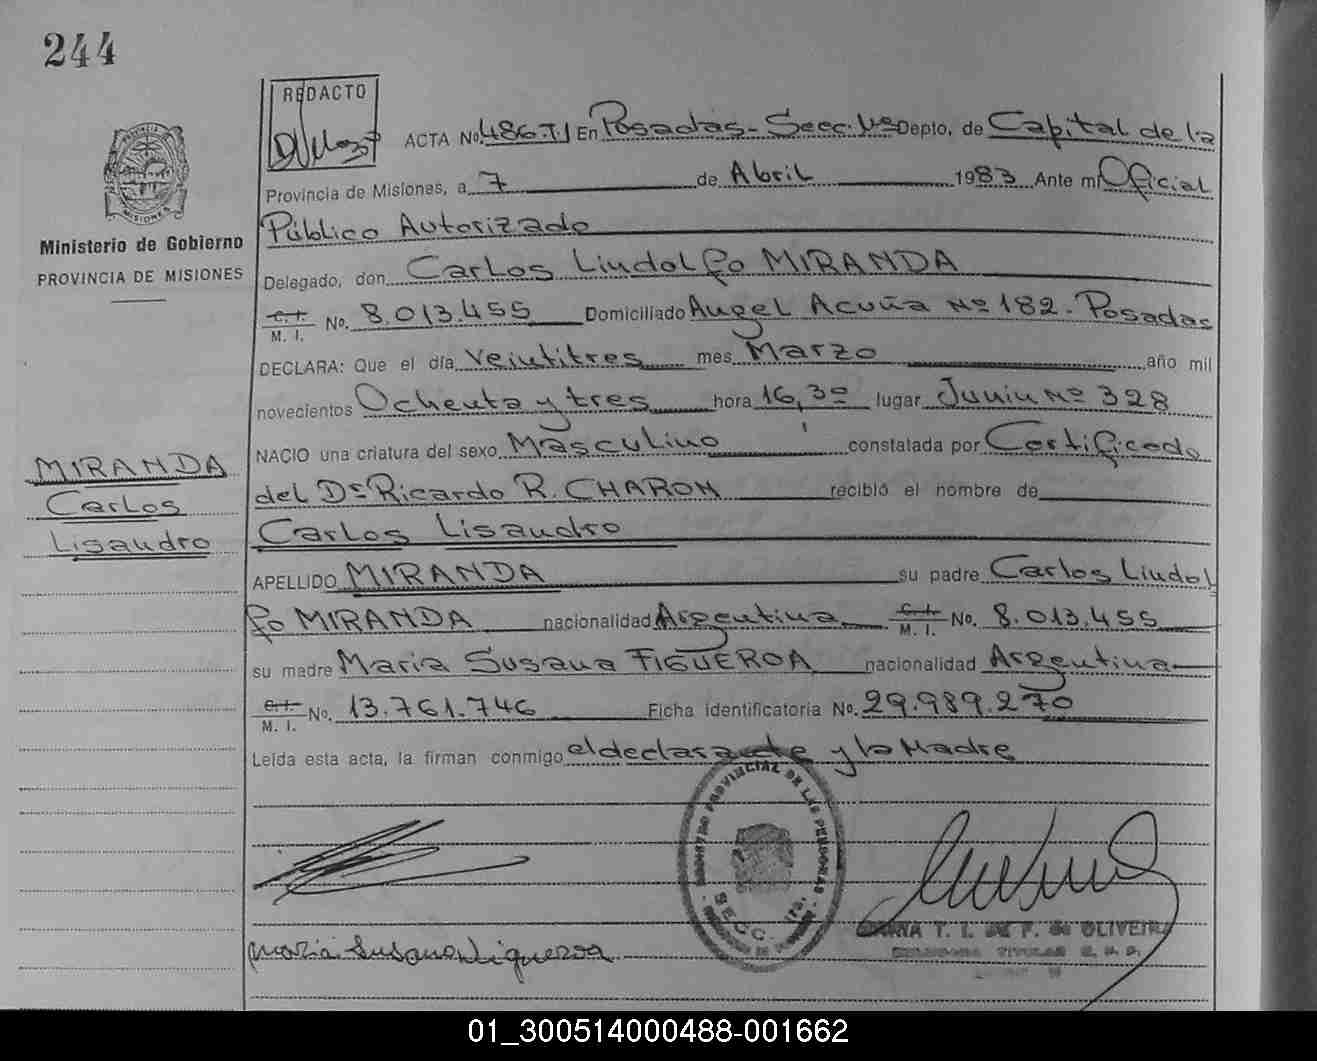 244
REDACTO
ACTA No. 486.T I En Posadas- Secc. 1ra Depto, de Capital de la
Provincia de Misiones, a 7 de Abril 1983 Ante mi Oficial
Público Autorizado
Delegado, don Carlos Lindolfo MIRANDA
C. I. M. I. No. 8.013.455 Domiciliado Angel Acuña Nº 182. Posadas
DECLARA: Que el día veintitres mes Marzo año mil
novecientos Ochenta y tres hora 16,30 lugar Junin Nº 328
NACIO una criatura del sexo Masculino constatada por Certificado
del Dr Ricardo R. CHARON recibió el nombre de
Carlos Lisandro
APELLIDO MIRANDA su padre Carlos Lindol
fo MIRANDA nacionalidad Argentina C. I. M. I. No. 8.013.455
su madre Maria Susana FIGUEROA nacionalidad Argentina
C. I. M. I. No. 13.761.746 Ficha identificatoria No. 29.989.270
Leída esta acta, la firman conmigo el declarante y la Madre
PROVINCIA DE MISIONES
Ministerio de Gobierno
PROVINCIA DE MISIONES
MIRANDA
Carlos
Lisandro
REGISTRO PROVINCIAL DE LAS PERSONAS
SECC. 1ra.
Maria Susana Figueroa
T. I. DE F. DE OLIVEIRA
01_300514000488-001662